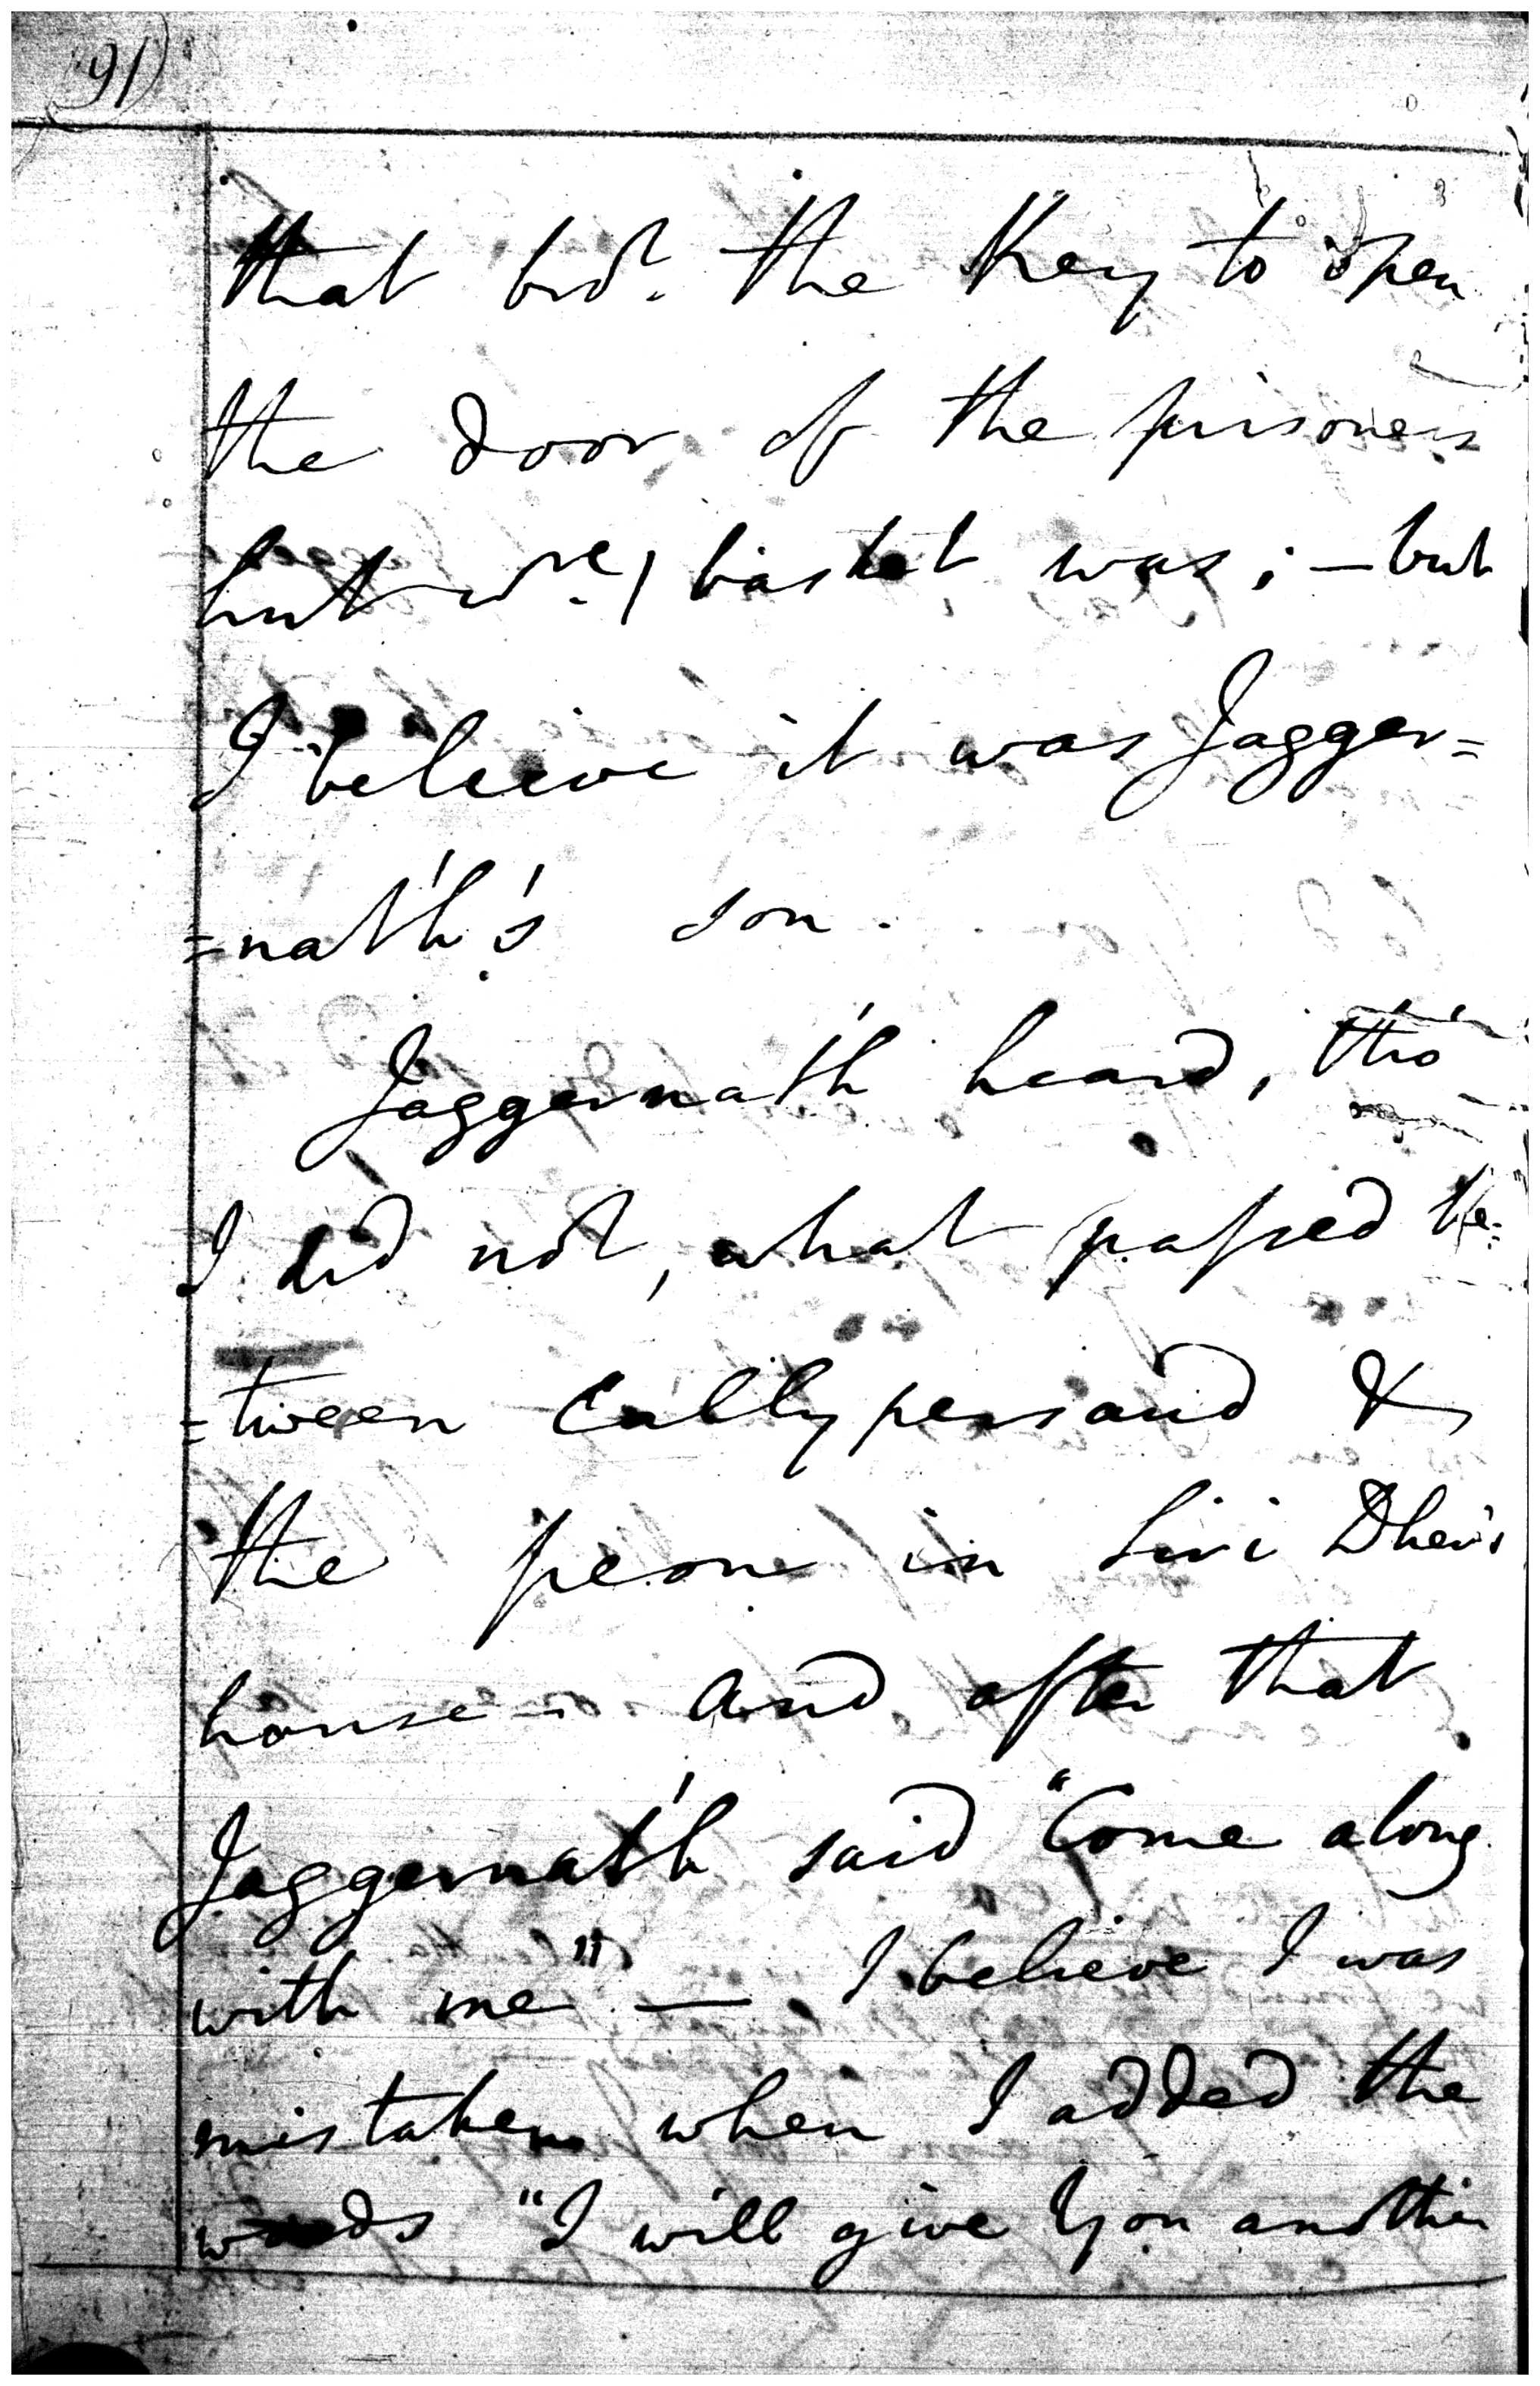 91)
that bro.t the Key to open
the door of the prisoners
hut w.re / basket was ; — but
I believe it was Jagger=
=nat'h's son.
Jaggernat'h heard, tho'
I did not, what passed be=
=tween Cally persaud &
the peone in Siri Dher's
house - And after that
Jaggernat'h said "Come along
with me" — I believe I was
mistaken when I added the
words "I will give You another